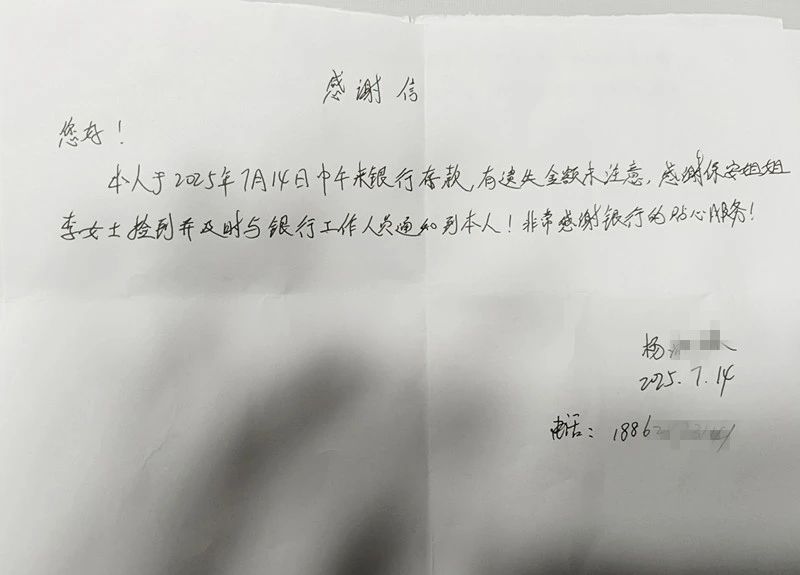 感谢信
您好！
本人于2025年7月14日中午来银行存款，有遗失金额未注意，感谢保安姐姐
李女士捡到并及时与银行工作人员通知到本人！非常感谢银行的贴心服务！
杨
2025.7.14
电话：1886